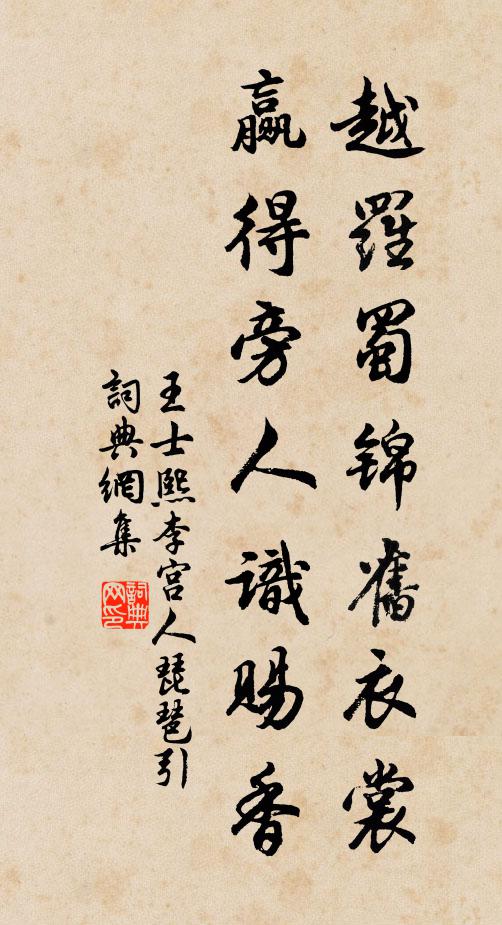 越羅蜀錦舊衣裳
贏得旁人識賜香
王士熙李宮人琵琶引
詞典網集
詞典网印